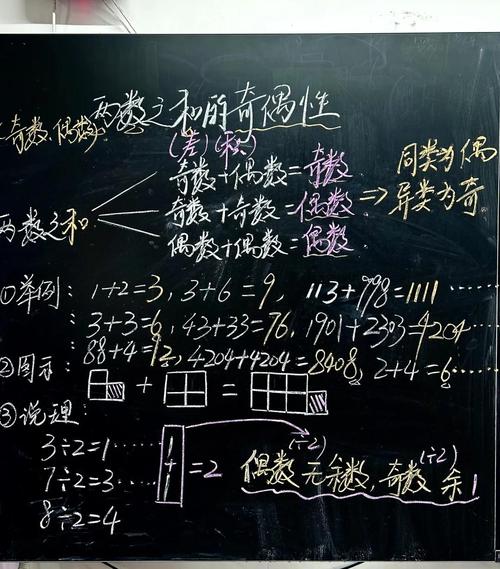 两数之和的奇偶性
(奇数、偶数)
(差)(积)
奇数+偶数=奇数
两数之和 奇数+奇数=偶数 => 同类为偶 异类为奇
偶数+偶数=偶数
①举例: 1+2=3, 3+6=9, 113+998=1111 ……
: 3+3=6, 43+33=76, 1901+2303=4204 ……
88+4=92, 4204+4204=8408, 2+4=6……
②图示: + =
③说理:
3÷2=1……1
7÷2=3……1
+ =2
8÷2=4
(÷2) (÷2)
偶数无余数,奇数余1